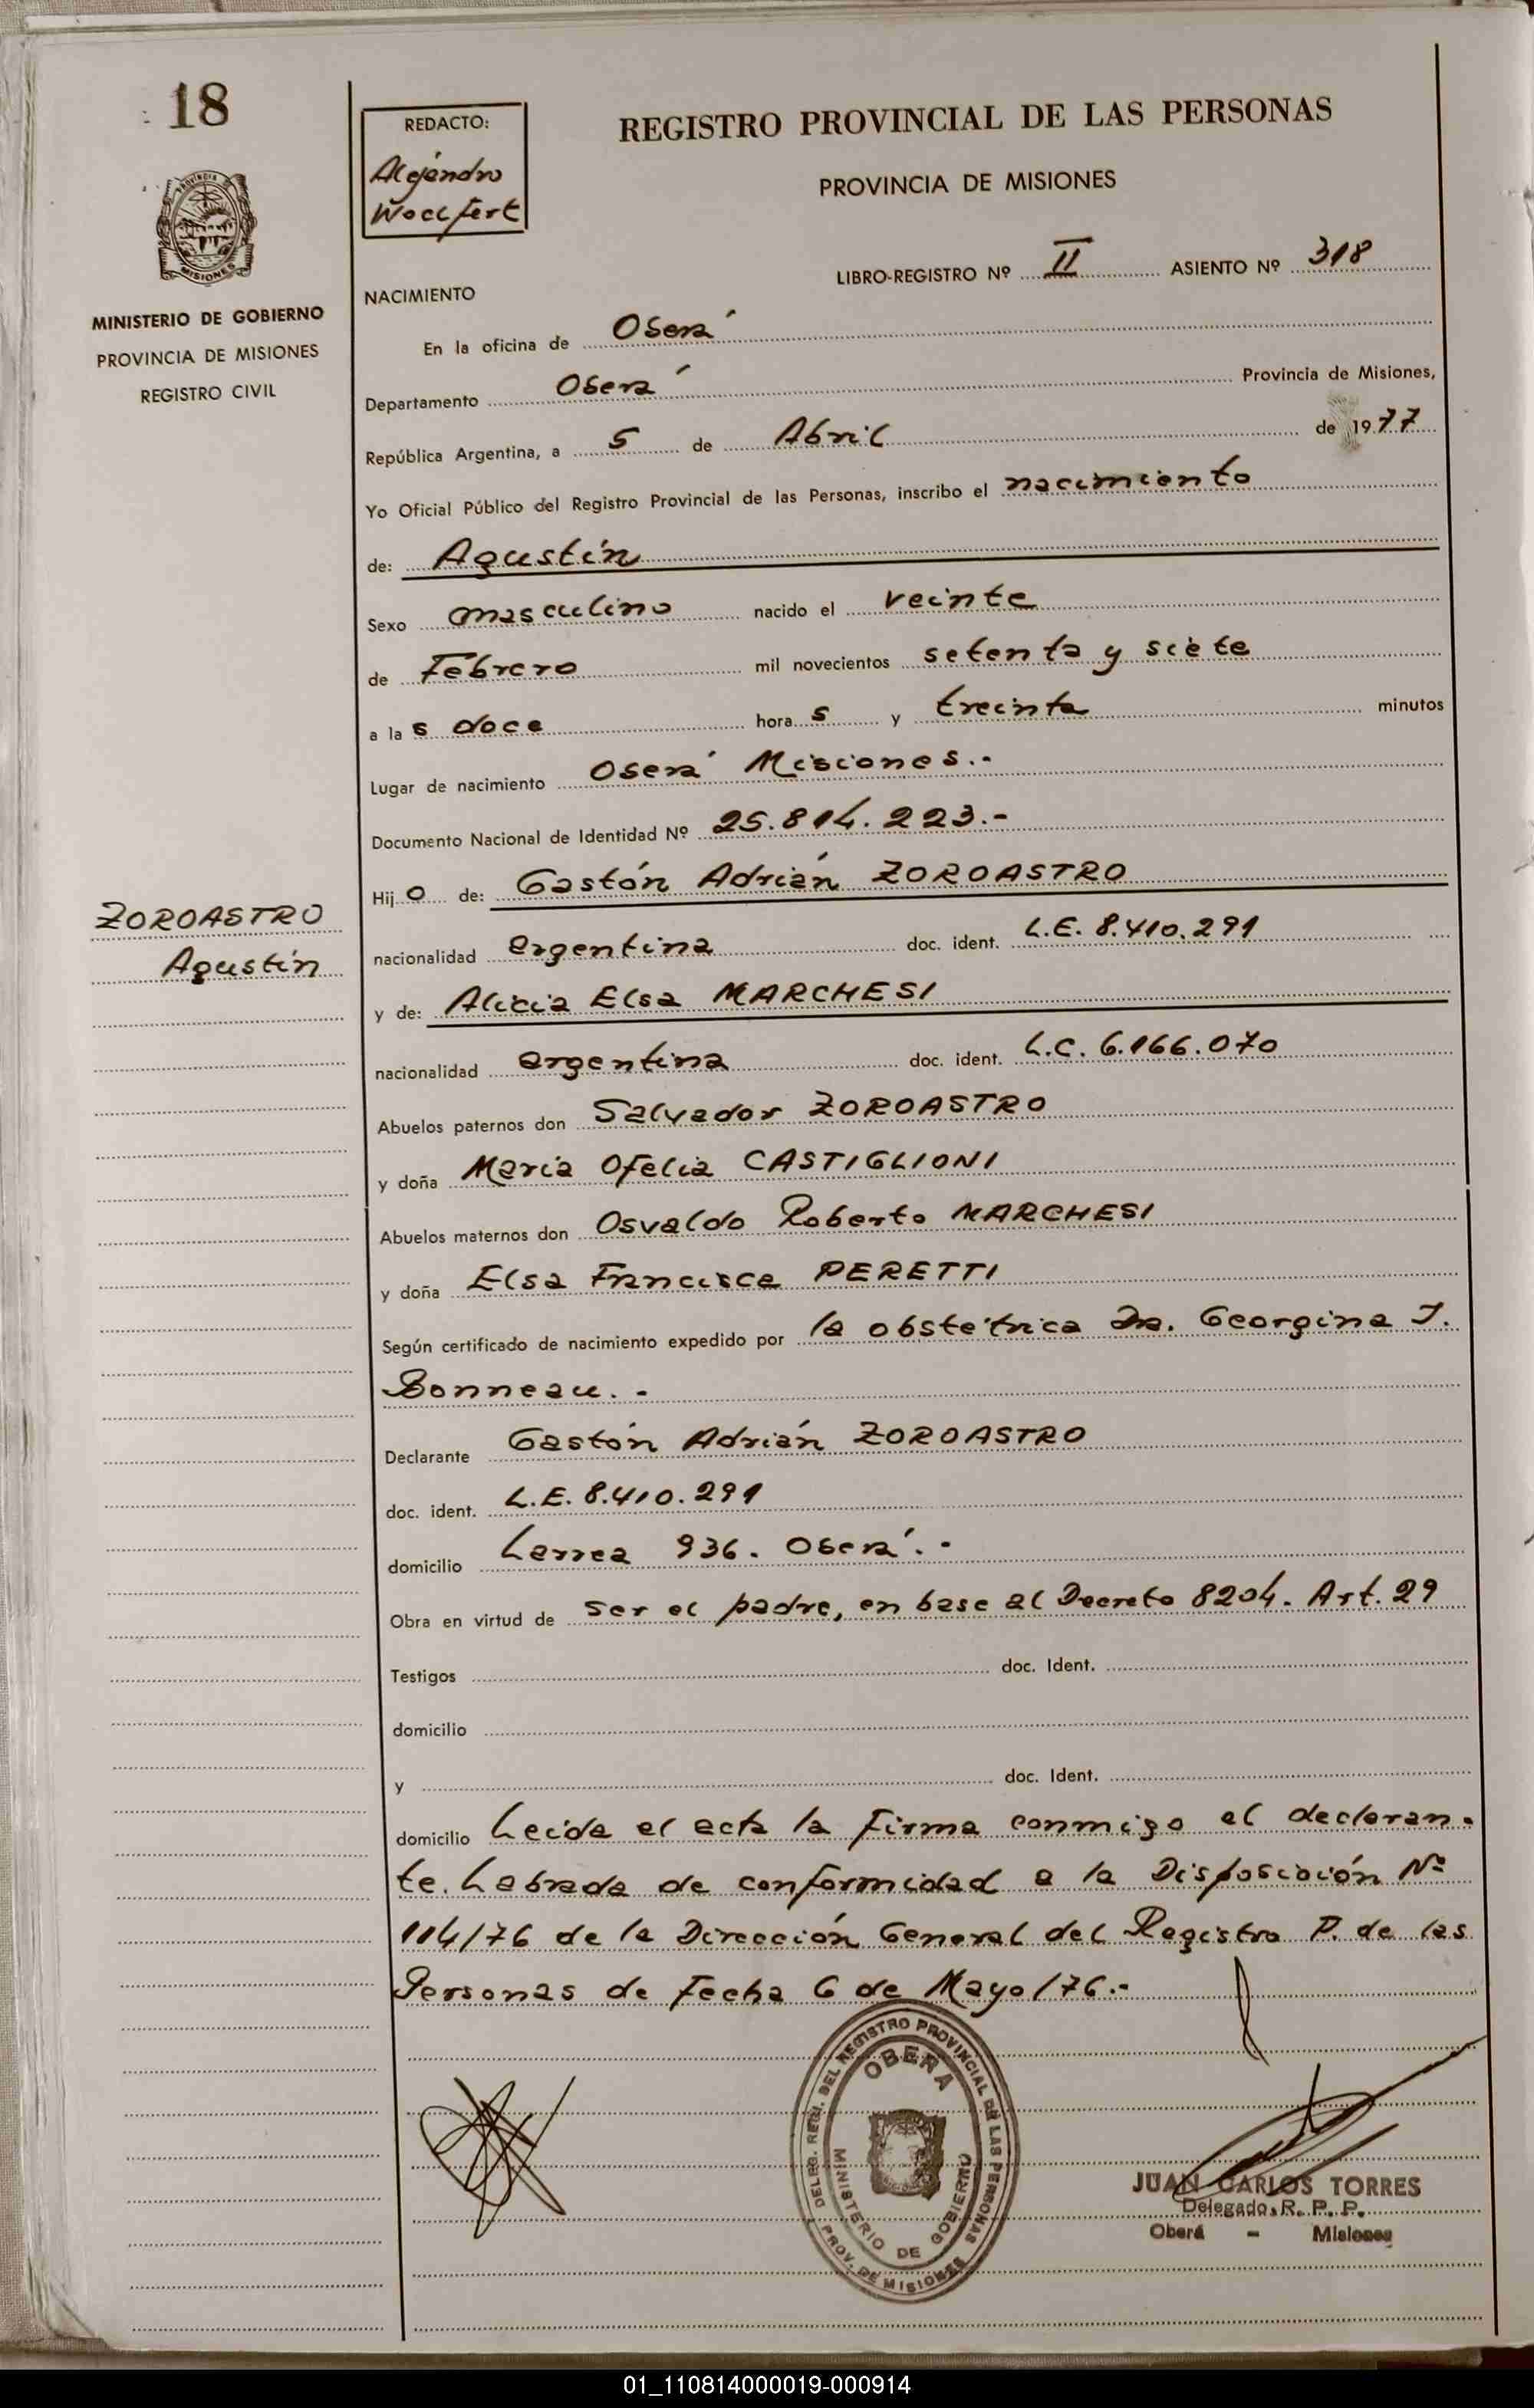 18
REDACTO:
Alejandro
Woclfert
REGISTRO PROVINCIAL DE LAS PERSONAS
PROVINCIA DE MISIONES
PROVINCIA
MISIONES
LIBRO-REGISTRO Nº II ASIENTO Nº 318
NACIMIENTO
MINISTERIO DE GOBIERNO
PROVINCIA DE MISIONES
REGISTRO CIVIL
En la oficina de Oberá
Departamento Oberá Provincia de Misiones,
República Argentina, a 5 de Abril de 1977
Yo Oficial Público del Registro Provincial de las Personas, inscribo el nacimiento
de: Agustín
Sexo masculino nacido el veinte
de Febrero mil novecientos setenta y siete
a las doce horas y treinta minutos
Lugar de nacimiento Oberá Misiones.-
Documento Nacional de Identidad Nº 25.814.223.-
Hijo de: Gastón Adrián ZOROASTRO
ZOROASTRO
Agustín
nacionalidad argentina doc. ident. L.E. 8.410.291
y de: Alicia Elsa MARCHESI
nacionalidad argentina doc. ident. L.C. 6.166.070
Abuelos paternos don Salvador ZOROASTRO
y doña María Ofelia CASTIGLIONI
Abuelos maternos don Osvaldo Roberto MARCHESI
y doña Elsa Francisca PERETTI
Según certificado de nacimiento expedido por la obstétrica Da. Georgina J.
Bonneau.-
Declarante Gastón Adrián ZOROASTRO
doc. ident. L.E. 8.410.291
domicilio Larrea 936. Oberá.-
Obra en virtud de ser el padre, en base al Decreto 8204. Art. 29
Testigos doc. Ident.
domicilio
y doc. Ident.
domicilio Leída el acta la firma conmigo el declaran-
te. Labrada de conformidad a la Disposición Nº
114/76 de la Dirección General del Registro P. de las
Personas de Fecha 6 de Mayo/76.-
DELEG. REGI. DEL REGISTRO PROVINCIAL DE LAS PERSONAS
OBERA
MINISTERIO DE GOBIERNO
PROV. DE MISIONES
JUAN CARLOS TORRES
Delegado R. P. P.
Oberá - Misiones
01_110814000019-000914